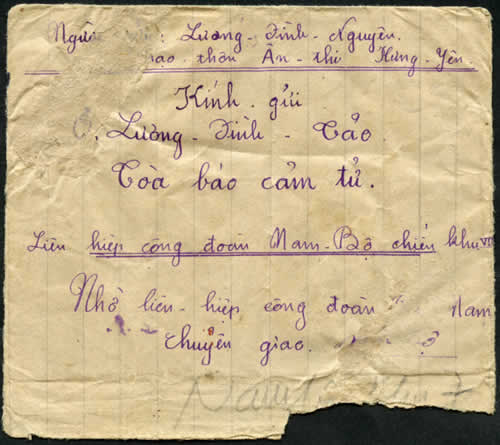 Người : Lương - Đình - Nguyên.
thôn Ân - thi Hưng - Yên
Kính gửi
Lương - Đình - Tảo
Toà báo cảm tử.
Liên hiệp công đoàn Nam - Bộ chiến khu VII
Nhờ liên - hiệp công đoàn Nam
chuyển giao.
7